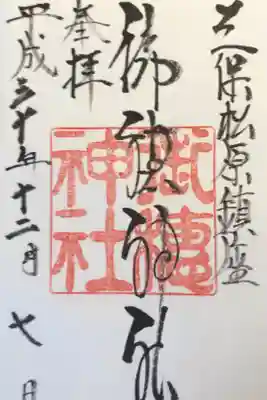 三保松原鎮座
御穂神社
奉拝
平成三十年十二月七日
御穂
神社